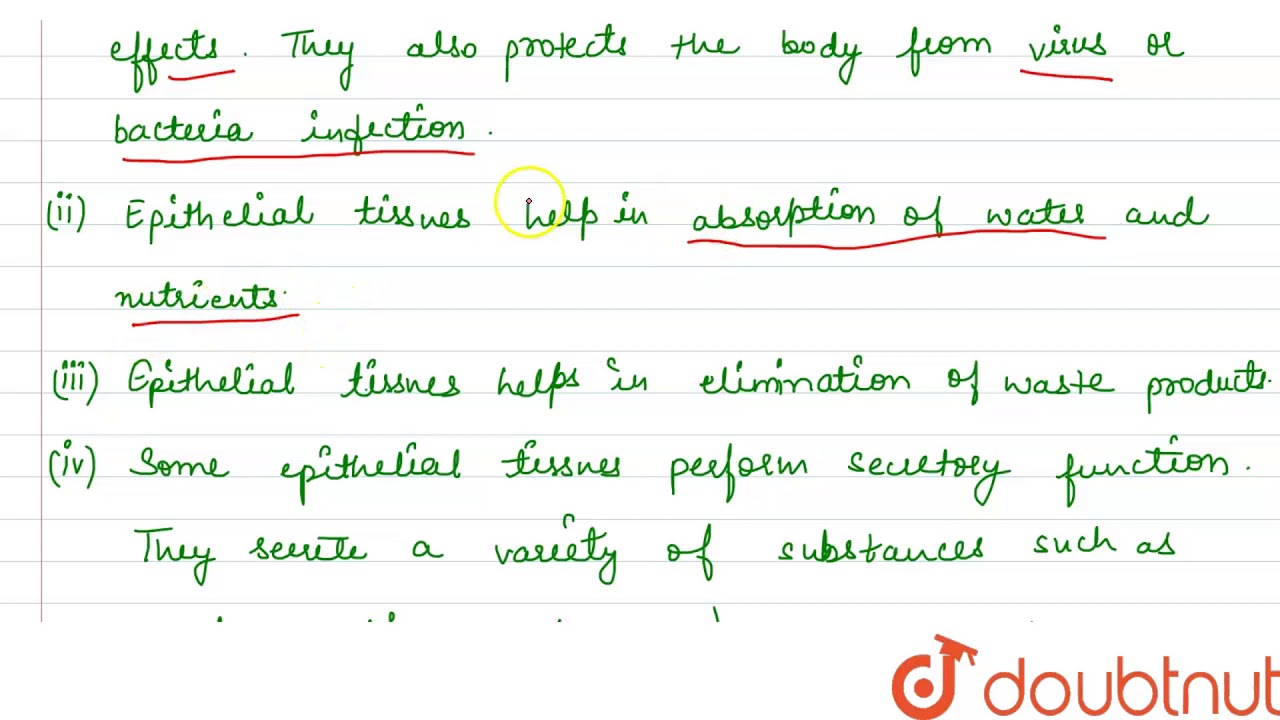 effects. They also protects the body from virus or
bacteria infection.
(ii) Epithelial tissues help in absorption of water and
nutrients.
(iii) Epithelial tissues helps in elimination of waste products.
(iv) Some epithelial tissues perform secretory function.
They secrete a variety of substances such as
doubtnut